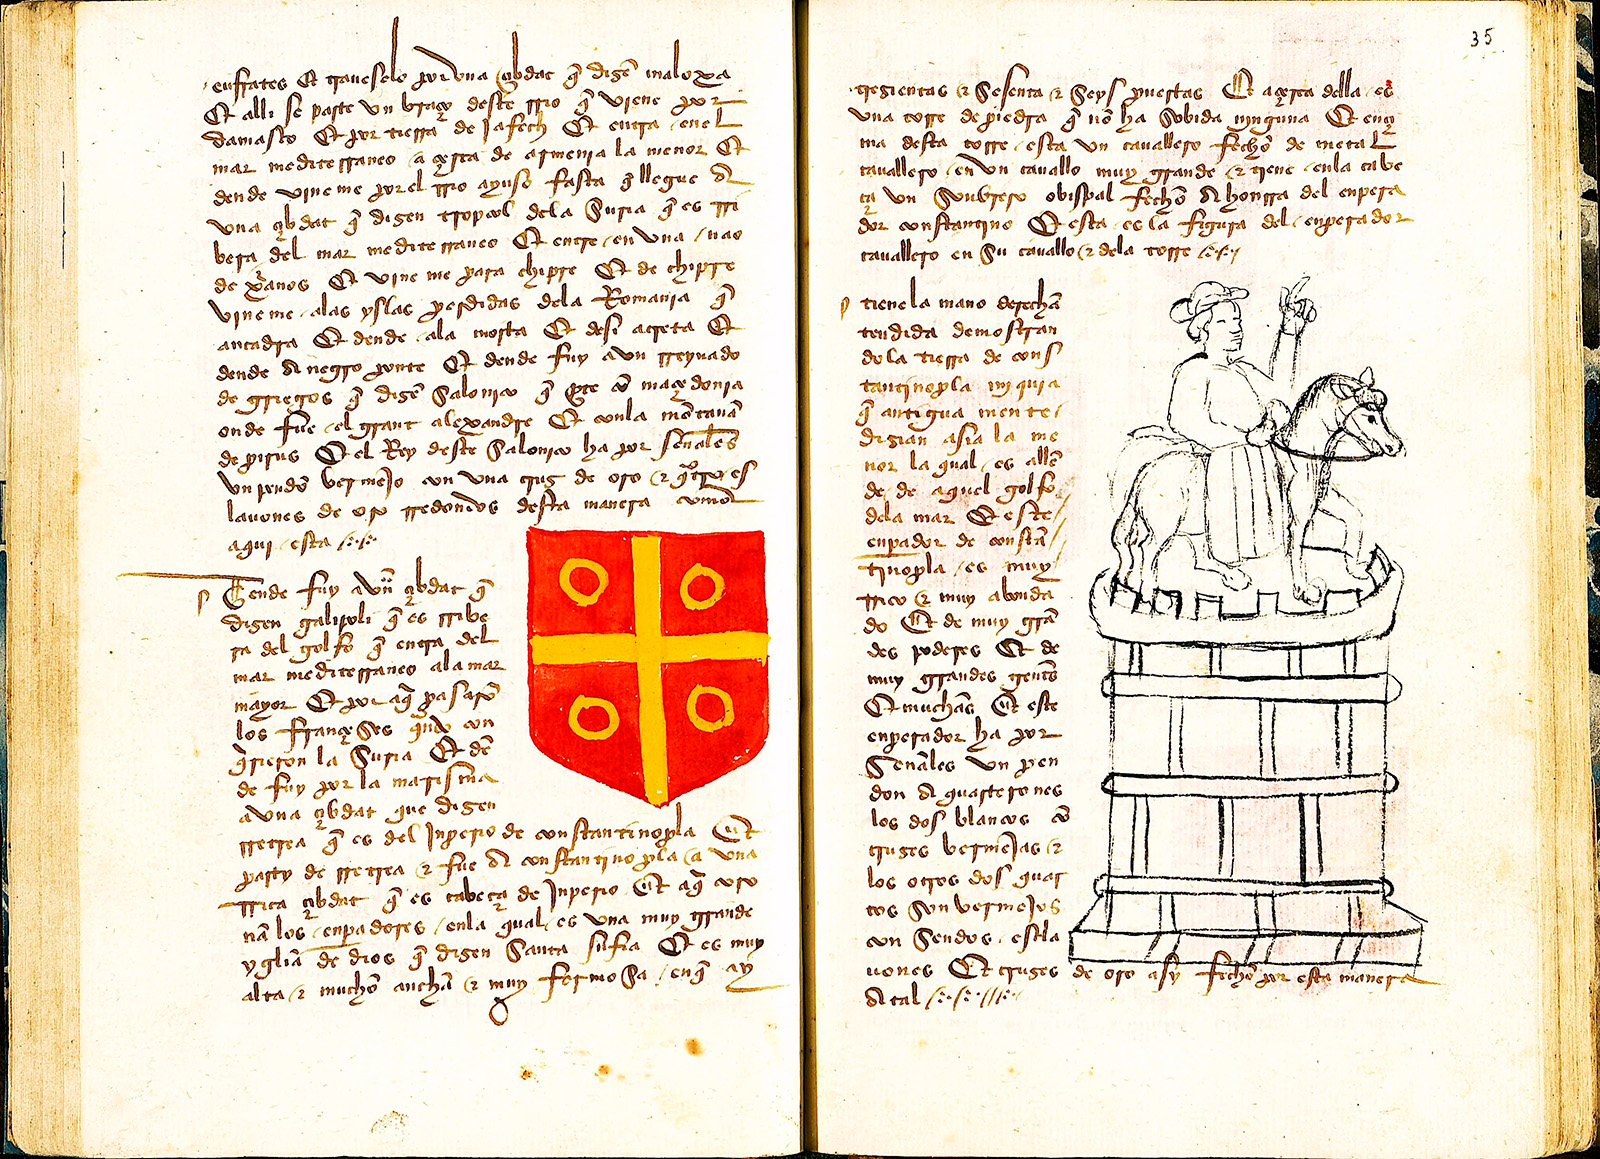 eufrates Et traueselo por una çibdat q̃ dizẽ maloxa
Et alli se parte un braço deste rrio q̃ viene por
damasco Et por tierra de Jafech Et entra enel
mar mediterraneo a çerca de armenia la menor Et
dende vineme por el rrio ayuso fasta q̃ llegue a
una çibdat q̃ dizen tripol dela Suria q̃ es rri
bera del mar mediterraneo Et entre en una nao
de xp̃anos Et vineme para chipre Et de chipre
vineme alas yslas perdidas dela Romania q̃
Et dende ala morea Et desi acreta Et
dende a negro ponte Et dende fuy a un rreynado
de griegos q̃ dizẽ Salonico q̃ es maçedonia
onde fue el grant alexandre Et
Et el Rey deste Salonico ha por señales
un pendõ bermejo con una cruz de oro & quatro es
lauones de oro rredondos desta manera como
aqui esta
Dende fuy a un çibdat q̃
dizen galipoli q̃ es rribe
ra del golfo q̃ entra del
mar mediterraneo ala mar
mayor Et por aq̃ pasarõ
los françeses quando con
q̃rieron la Suria Et dẽ
de fuy por la marisma
a una çibdat que dizen
rrecrea q̃ es del Inperio de constantinopla Et
party de rrecrea & fue a constantinopla a una
rrica çibdat q̃ es cabeça de Inperio Et aq̃ coro
nã los enpadores enla qual es una muy grande
ygliã de dios q̃ dizen Santa sufia Et es muy
alta & muchõ anchã & muy fermosa enq̃ ay
35
trezientas & Sesenta & Seys puertas Et açerca della es
una torre de piedra q̃ nõ ha sobida ninguna Et ençi
ma desta torre esta un cauallero fechõ de metal
cauallero en un cauallo muy grande & tiene enla cabe
ça un Sonbrero obispal fechõ a honrra del enpera
dor constantino Et esta es la figura del enperador
cauallero en Su cauallo & dela torre
tiene la mano derechã
tendida demostran
do la tierra de cons
tantinopla
q̃ antigua mente
dizian asia la me
nor la qual es allẽ
de de aquel golfo
dela mar Et este
enpador de constã
tinopla es muy
rrico & muy abonda
do Et de muy grã
des poderes Et de
muy grandes gentes
Et muchãs Et este
enperador ha por
Señales un pen
don a quarterones
los dos blancos cõ
cruzes bermejas &
los otros dos quar
tos Son bermejos
con Sendos esla
uones Et cruzes de oro asy fechõ por esta manera
a tal